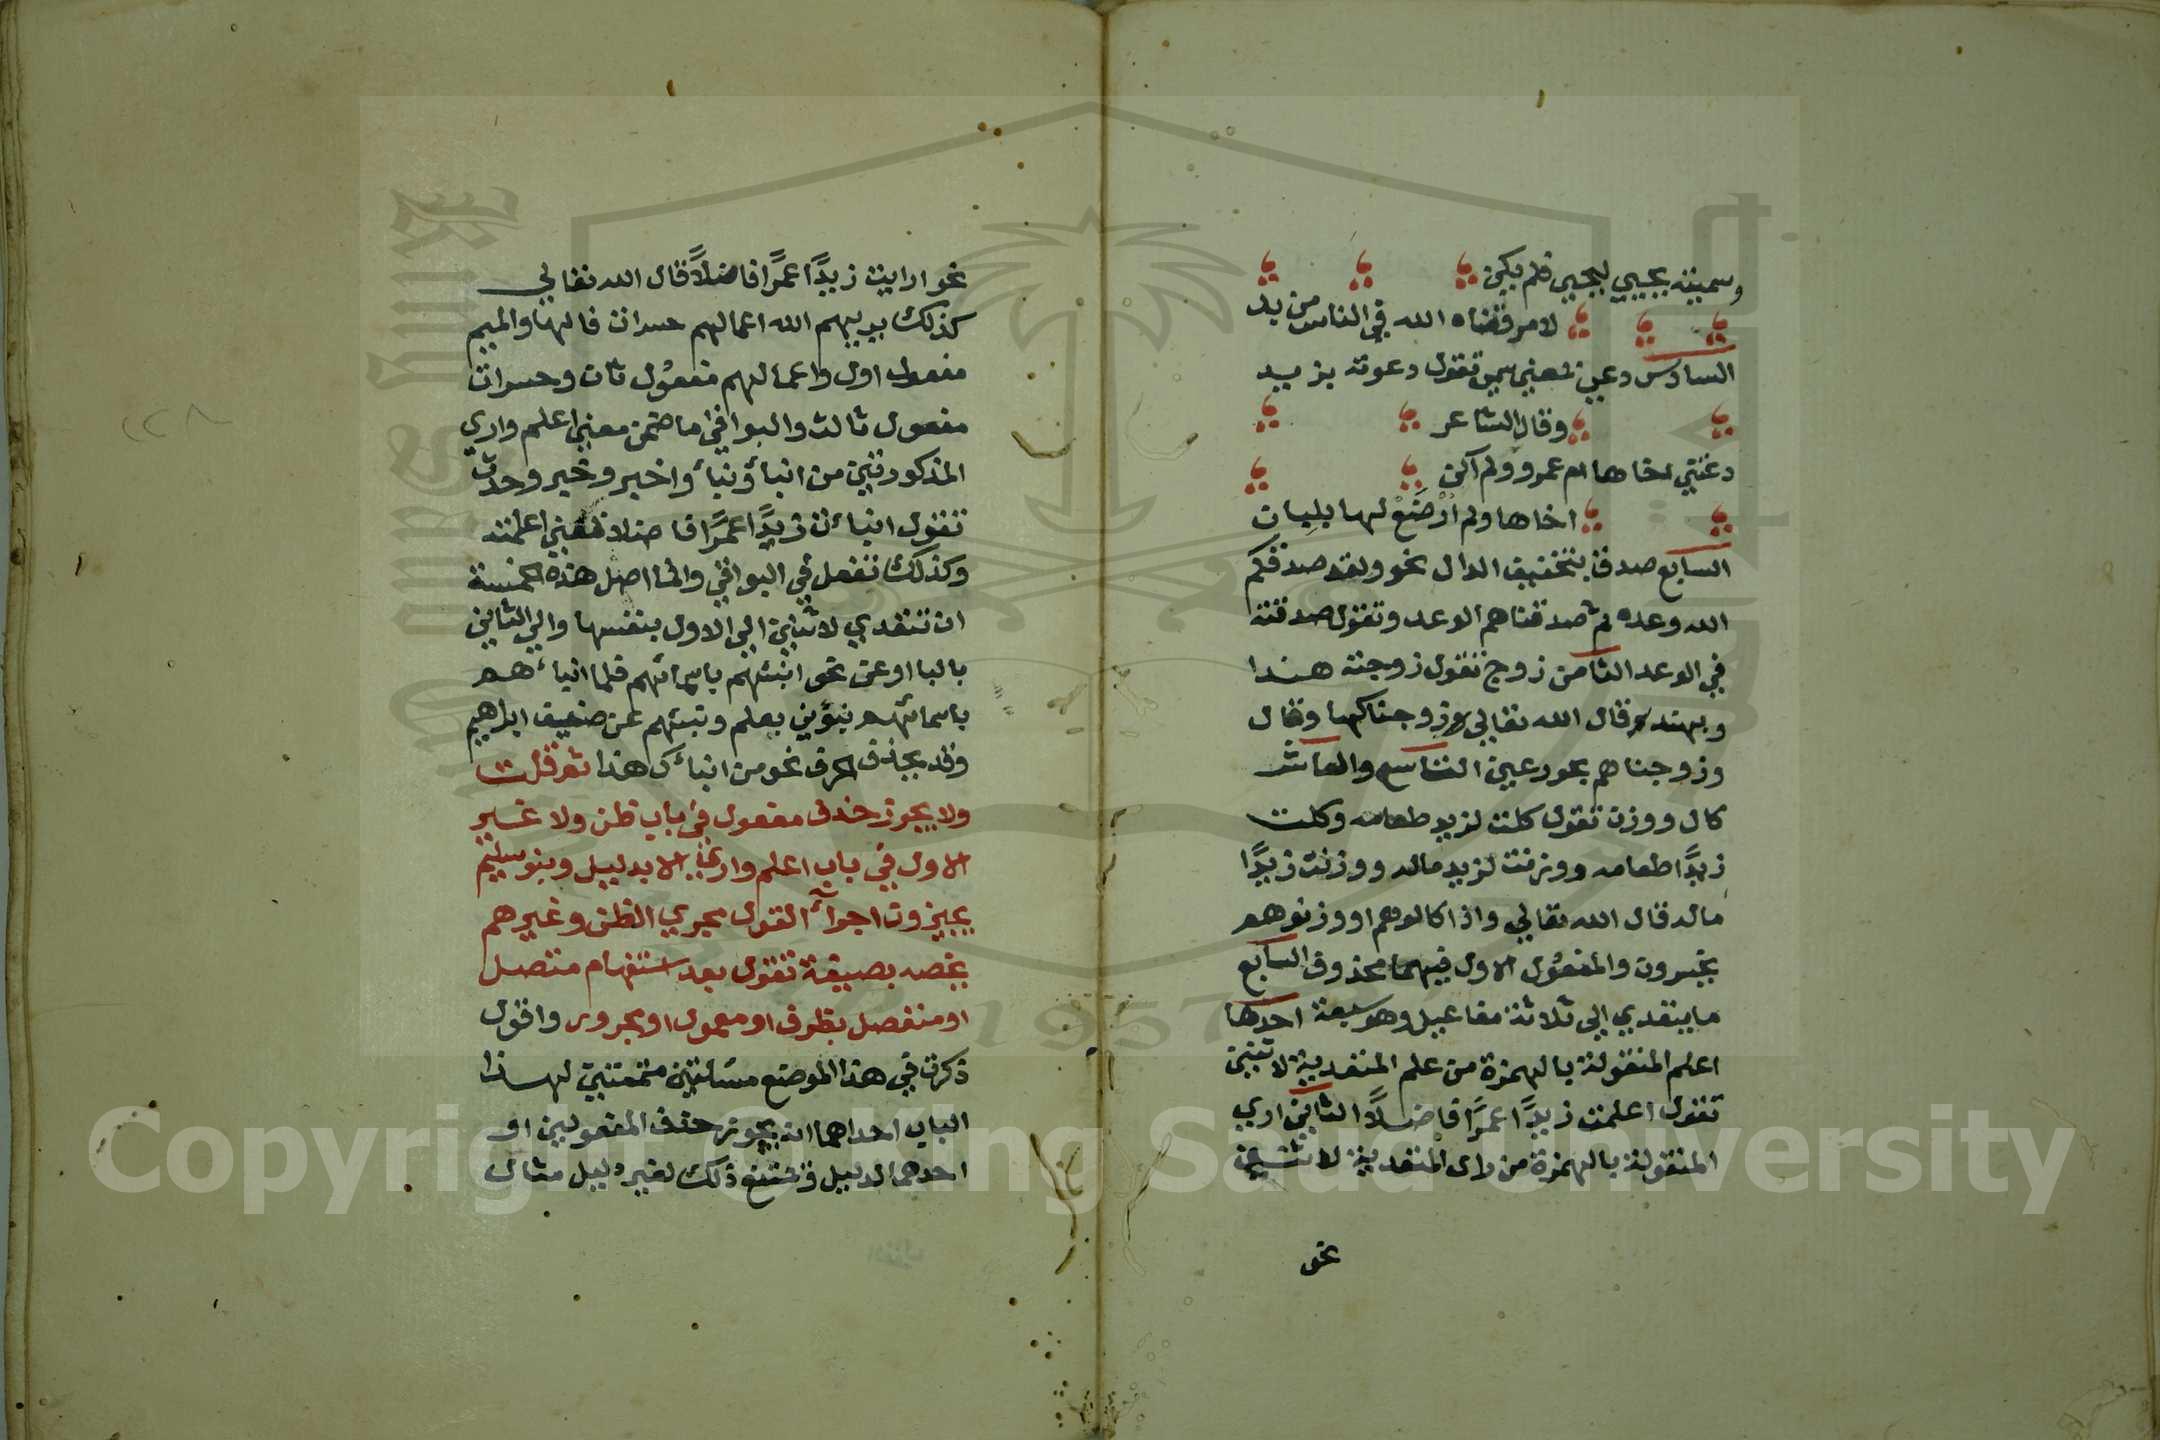 وسميته يحيي ليحيي فلم يكن
لامر قضاه الله في الناس من بد
السادس دعي بمعني سمي تقول دعوته بزيد
وقال الشاعر
دعتني اخاها ام عمرو ولم اكن
اخاها ولم ارضع لها بلبان
السابع صدق بتخفيف الدال نحو ولقد صدقكم
الله وعده ثم صدقناهم الوعد وتقول صدقته
في الوعد الثامن زوج تقول زوجته هندا
وبهند قال الله تعالي زوجناكها وقال
وزوجناهم بحور عين التاسع والعاشر
كال ووزن تقول كلت لزيد طعامه وكلت
زيدًا طعامه ووزنت لزيد ماله ووزنت زيدًا
ماله قال الله تعالي واذا كالوهم او وزنوهم
يخسرون والمفعول الاول فيهما محذوف السابع
ما يتعدي الي ثلاثة مفاعيل وهو سبعة احدها
اعلم المنقولة بالهمزة من علم المتعدية لاثنين
تقول اعلمت زيدًا عمرًا فاضلاً الثاني اري
المنقولة بالهمزة من راي المتعدية لاثنين
نحو
نحو ارايت زيدًا عمرًا فاضلاً قال الله تعالي
كذلك يريهم الله اعمالهم حسرات فالها والميم
مفعول اول واعمالهم مفعول ثان وحسرات
مفعول ثالث والبواقي ما ضمن معني اعلم واري
المذكورتين من انبأ ونبأ واخبر وخبر وحدث
تقول انبأت زيدًا عمرًا فاضلا بمعني اعلمته
وكذلك تفعل في البواقي وانما اصل هذه الخمسة
ان تتعدي لاثنين الي الاول بنفسها والي الثاني
بالبا او عن نحو انبئهم باسمائهم فلما انبأهم
باسمائهم نبؤني بعلم ونبئهم عن ضيف ابراهيم
وقد يحذف الحرف نحو من انباك هذا ثم قلت
ولا يجوز حذف مفعول في باب ظن ولا غير
الاول في باب اعلم واري الا بدليل وبنو سليم
يجيزون اجرآء القول مجري الظن وغيرهم
يخصه بصيغة تقول بعد استفهام متصل
او منفصل بظرف او معمول او مجرور واقول
ذكرت في هذا الموضع مسئلتين متممتين لهذا
الباب احداهما انه يجوز حذف المفعولين او
احدهما لدليل ويمتنع ذلك لغير دليل مثال
Copyright © King Saud University
1957